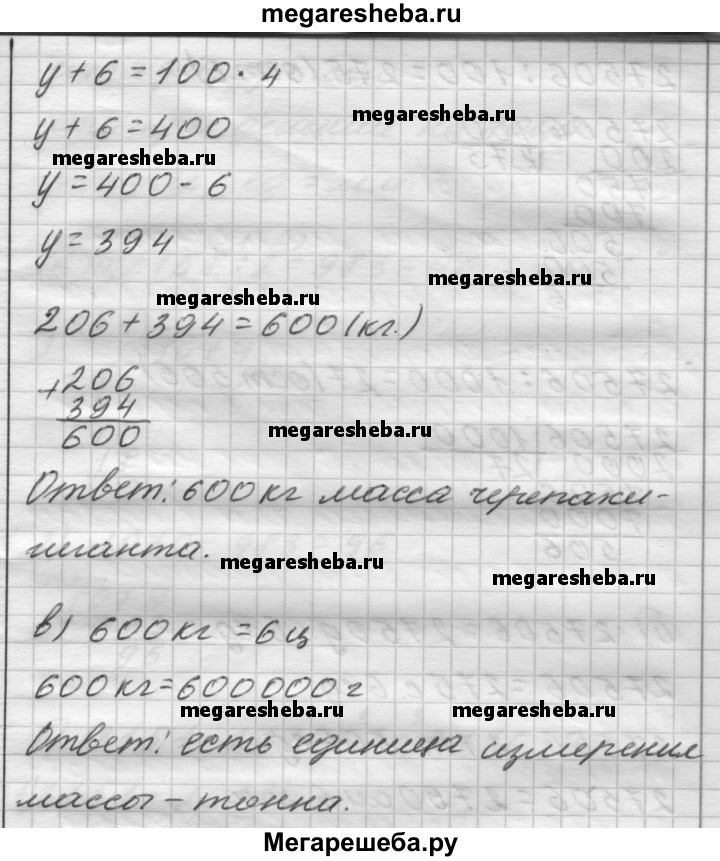 megaresheba.ru
y + 6 = 100 · 4
megaresheba.ru
y + 6 = 400
megaresheba.ru
y = 400 - 6
y = 394
megaresheba.ru
megaresheba.ru
206 + 394 = 600 (кг.)
+ 206
394
600
megaresheba.ru
Ответ: 600 кг масса черепахи-
гиганта.
megaresheba.ru
megaresheba.ru
в) 600 кг = 6 ц
600 кг = 600000 г
megaresheba.ru
megaresheba.ru
Ответ: есть единица измерения
массы – тонна.
Мегарешеба.ру